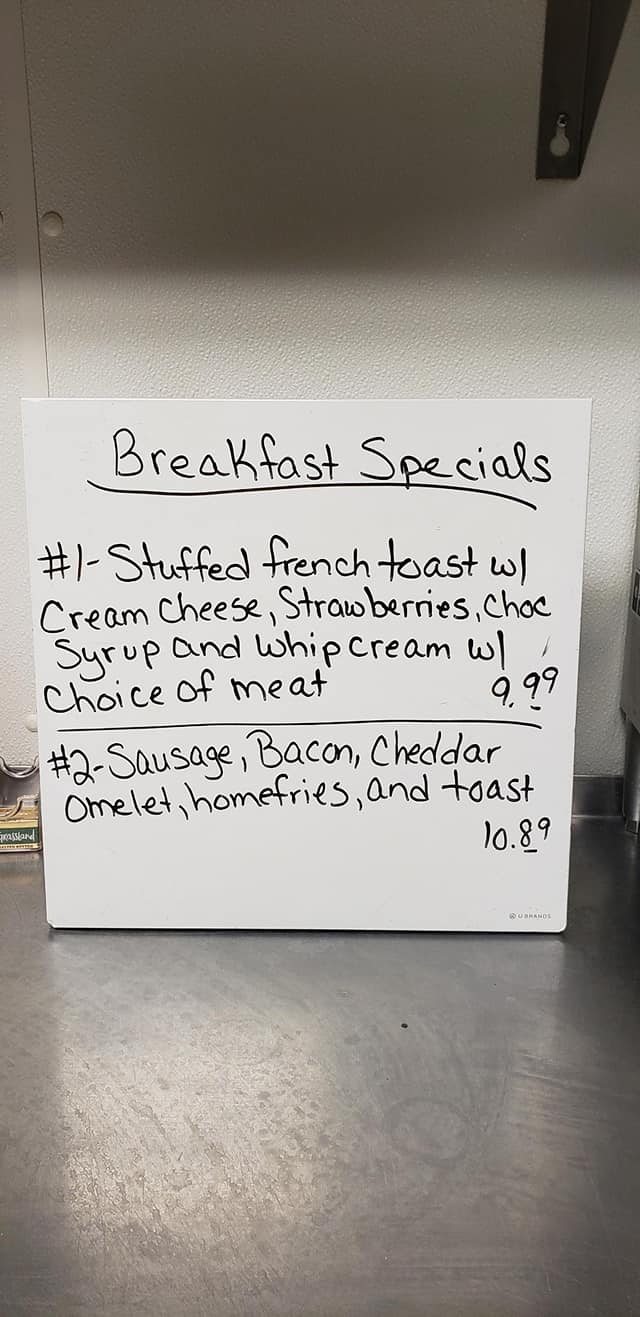 Breakfast Specials
#1- Stuffed french toast w/
Cream Cheese, Strawberries, Choc
Syrup and whip cream w/
Choice of meat 9.99
#2- Sausage, Bacon, Cheddar
Omelet, homefries, and toast
10.89
U BRANDS
Grassland